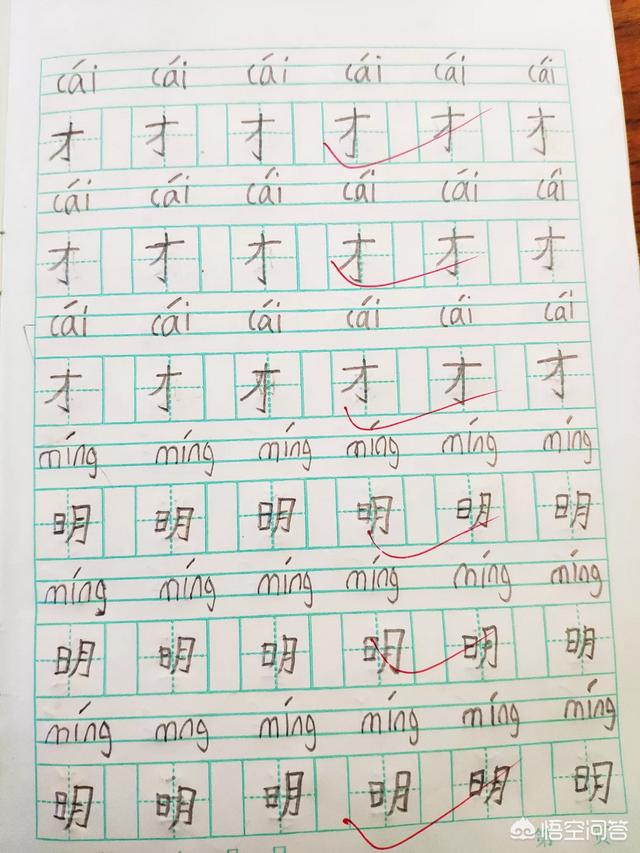 cái cái cái cái cái cái
才 才 才 才 才 才
cái cái cái cái cái cái
才 才 才 才 才 才
cái cái cái cái cái cái
才 才 才 才 才 才
míng míng míng míng míng míng
明 明 明 明 明 明
míng míng míng míng míng míng
明 明 明 明 明 明
míng mng míng míng míng míng
明 明 明 明 明 明
第 页
悟空问答